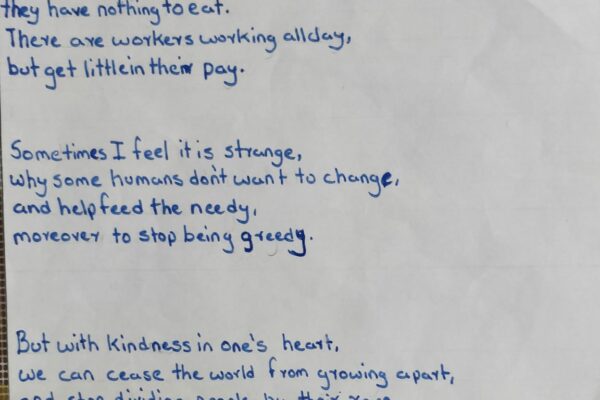 they have nothing to eat.
There are workers working all day,
but get little in their pay.
Sometimes I feel it is strange,
why some humans don't want to change,
and help feed the needy,
moreover to stop being greedy.
But with kindness in one's heart,
we can cease the world from growing apart,
and stop dividing people by their race